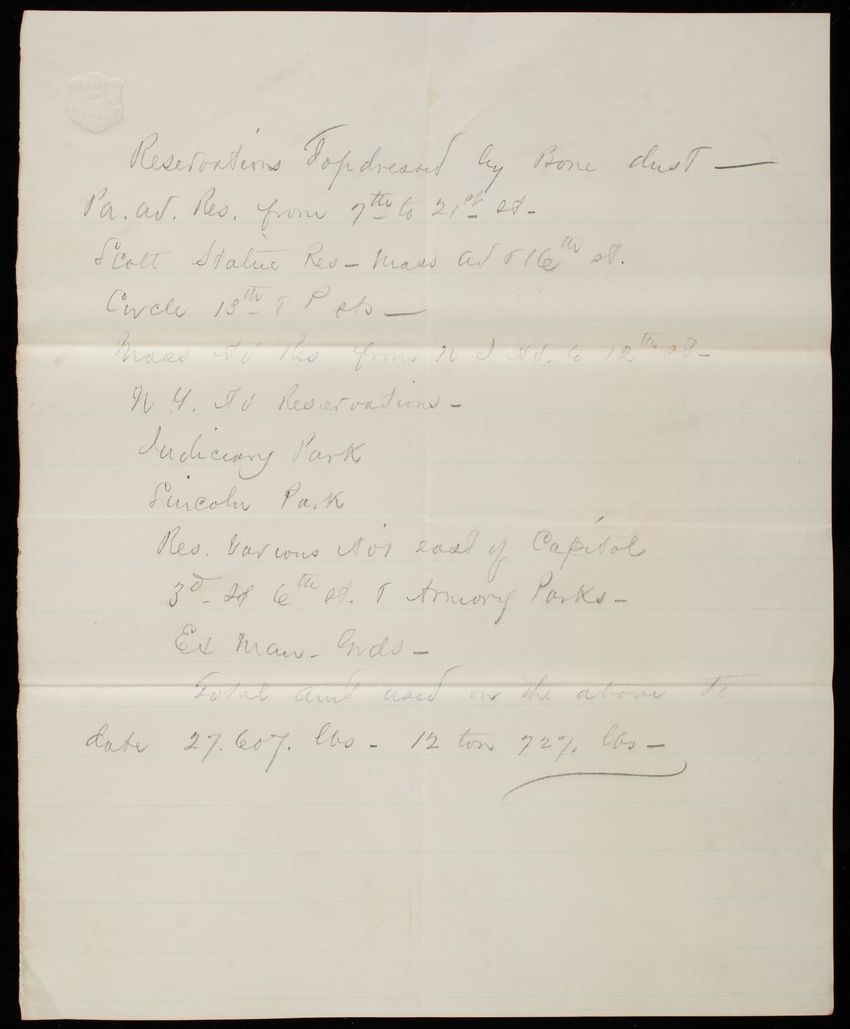 Reservations Topdressed by Bone dust —
Pa. av. Res. from 7th to 21st st -
Scott Statue Res - Mass av & 16th st.
Circle 13th & P sts —
Mass Av Res from N J. Av. to 12th st -
N Y. Av Reservations -
Judiciary Park
Lincoln Park
Res. Various No's east of Capitol
3d - st 6th st. & Armory Parks -
Ex Man. Grds -
Total amt used on the above to
date 27.607. lbs - 12 ton 727. lbs -